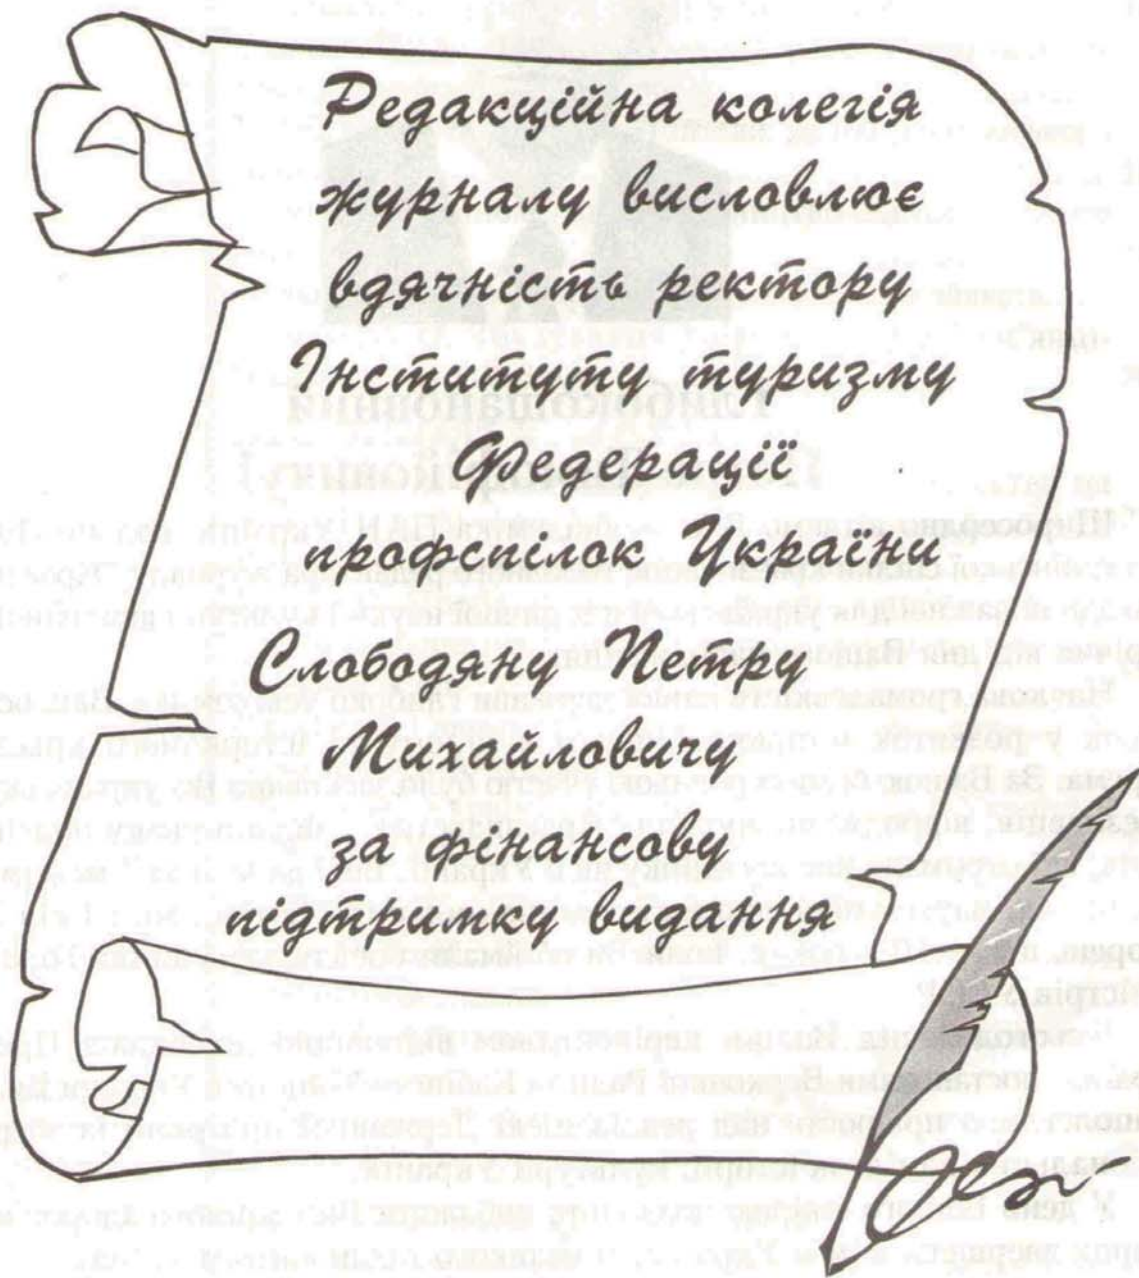 Редакційна колегія
журналу висловлює
вдячність ректору
Інституту туризму
Федерації
профспілок України
Слободяну Петру
Михайловичу
за фінансову
підтримку видання